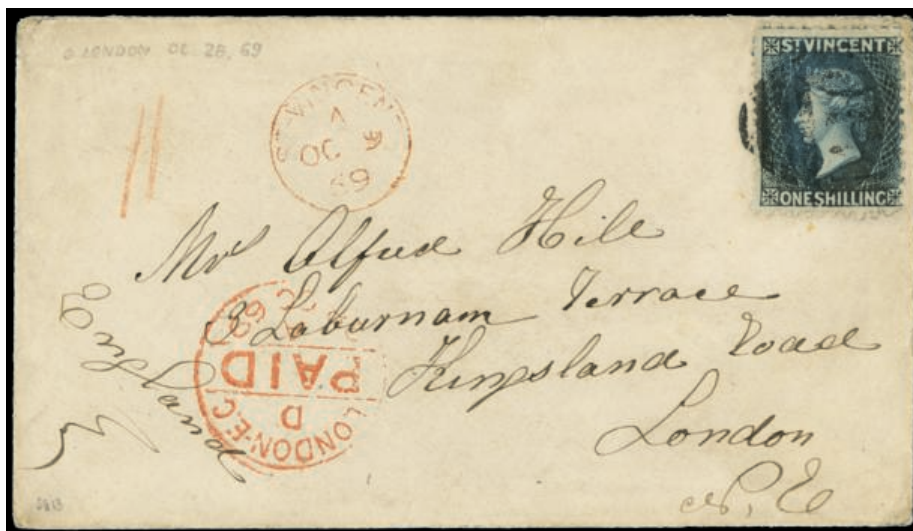 LONDON OC 28, 69
ST VINCENT
ONE SHILLING
11
ST. VINCENT
A
OC 9
69
Mrs Alfred Hill
3 Laburnam Terrace
Kingsland Road
London
N. E
England
LONDON-E.C
D
PAID
69